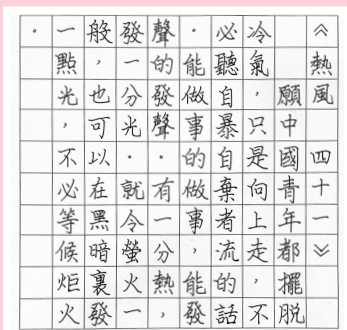 《熱風 四十一》
願中國青年都擺脫
冷氣，只是向上走，不
必聽自暴自棄者流的話
・能做事的做事，能發
聲的發聲・有一分熱，
發一分光・就令螢火一
般，也可以在黑暗裏發
一點光，不必等候炬火
・